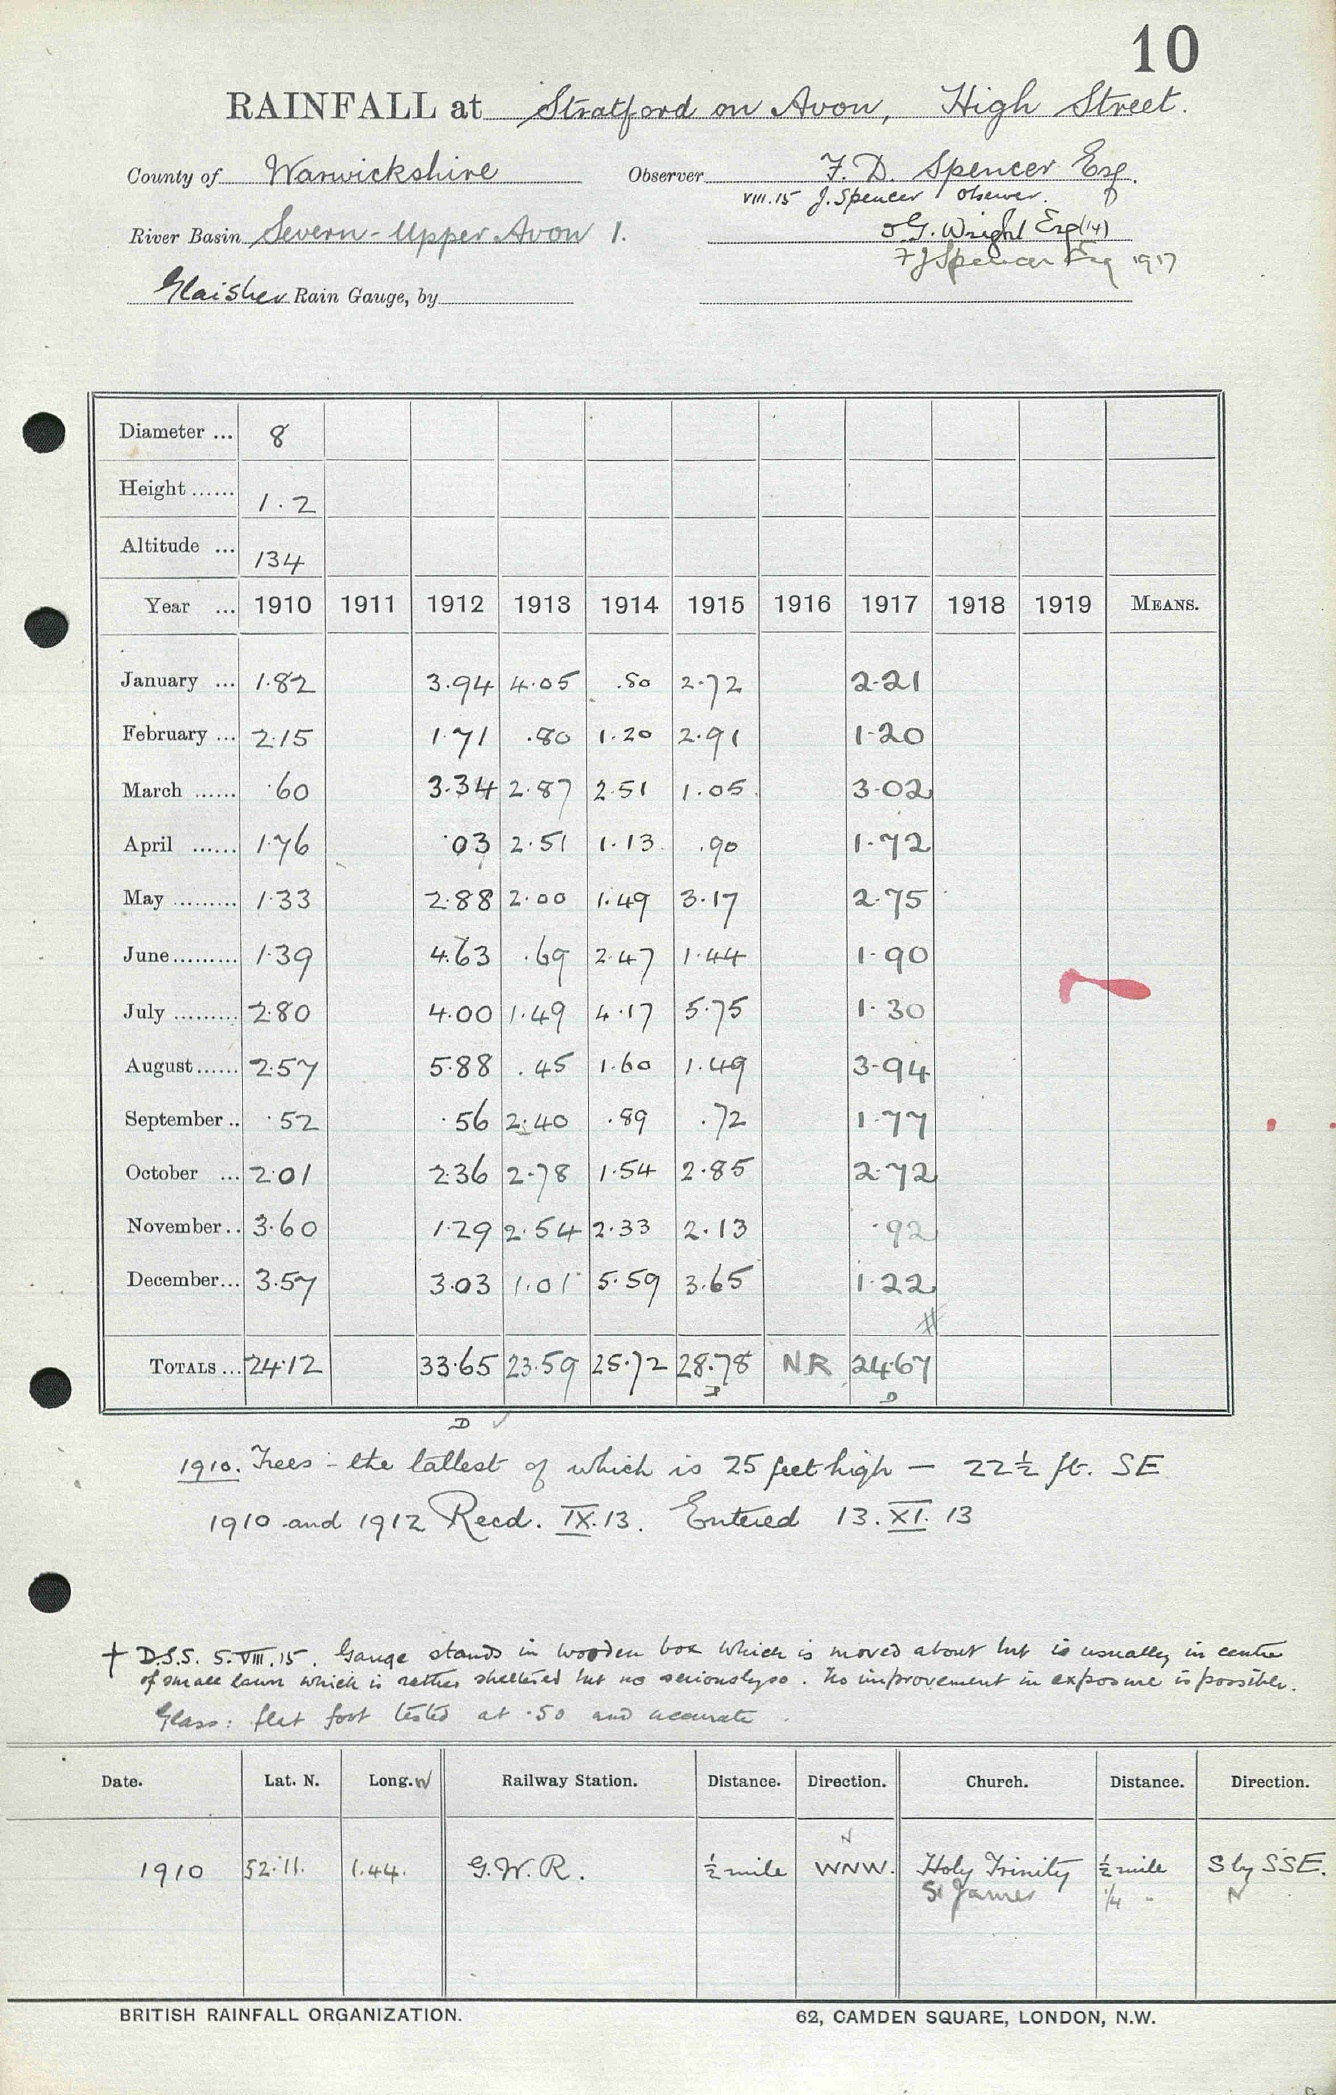 10
RAINFALL at Stratford on Avon, High Street.
County of Warwickshire Observer F. D. Spencer Esq.
VIII.15 J. Spencer Observer.
River Basin Severn - Upper Avon 1. G. Wright Esq (14)
F J Spencer Esq 1917
Glaisher Rain Gauge, by
Diameter ... 8
Height ...... 1.2
Altitude ... 134
Year ... 1910 1911 1912 1913 1914 1915 1916 1917 1918 1919 MEANS.
January ... 1.82 3.94 4.05 .80 2.72 2.21
February ... 2.15 1.71 .80 1.20 2.91 1.20
March ...... .60 3.34 2.87 2.51 1.05 3.02
April ...... 1.76 .03 2.51 1.13 .90 1.72
May ......... 1.33 2.88 2.00 1.49 3.17 2.75
June......... 1.39 4.63 .69 2.47 1.44 1.90
July ......... 2.80 4.00 1.49 4.17 5.75 1.30
August...... 2.57 5.88 .45 1.60 1.49 3.94
September .. .52 .56 2.40 .89 .72 1.77
October ... 2.01 2.36 2.78 1.54 2.85 2.72
November.. 3.60 1.29 2.54 2.33 2.13 .92
December... 3.57 3.03 1.01 5.59 3.65 1.22
#
TOTALS ... 24.12 33.65 23.59 25.72 28.78 N.R. 24.67
D D D
1910. Trees - the tallest of which is 25 feet high — 22½ ft. SE
1910 and 1912 Recd. IX.13. Entered 13.XI.13
† D.S.S. 5.VIII.15. Gauge stands in wooden box which is moved about but is usually in centre
of small lawn which is rather sheltered but no seriously so. No improvement in exposure is possible.
Glass: flat foot tested at .50 and accurate.
Date. Lat. N. Long. W Railway Station. Distance. Direction. Church. Distance. Direction.
N
1910 52.11. 1.44. G.W.R. ½ mile WNW. Holy Trinity ½ mile S by SSE.
St James ¼ " N
BRITISH RAINFALL ORGANIZATION. 62, CAMDEN SQUARE, LONDON, N.W.